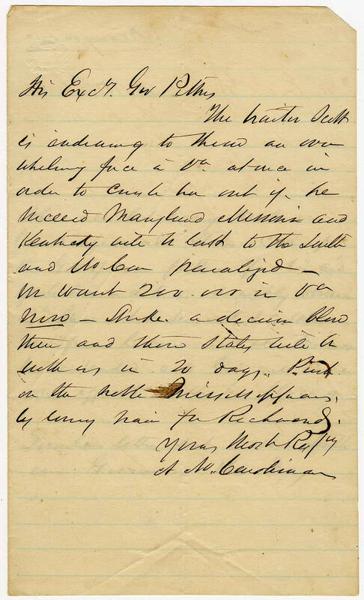 His Excy. Gov Pettus
The traitor Scott
is endeavoring to throw an over
whelming force in Va. at once in
order to crush her out if he
succeed Maryland Missouri and
Kentucky will be lost to the South
and the war paralized —
We want 200.000 in Va
now — Strike a decisive blow
then and these States will be
with us in 20 days. Push
in the noble Mississippians.
by every train for Richmond.
Yours Most Resply
A N. Carolinian